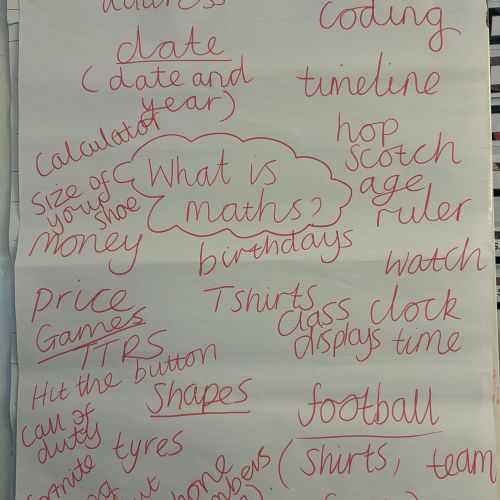 address
coding
date
(date and
year)
timeline
calculator
hop
scotch
What is
maths?
size of
your
shoe
age
ruler
money
birthdays
watch
price
Tshirts
class
displays
clock
time
Games
TTRS
Hit the button
shapes
football
(shirts, team
call of
duty
tyres